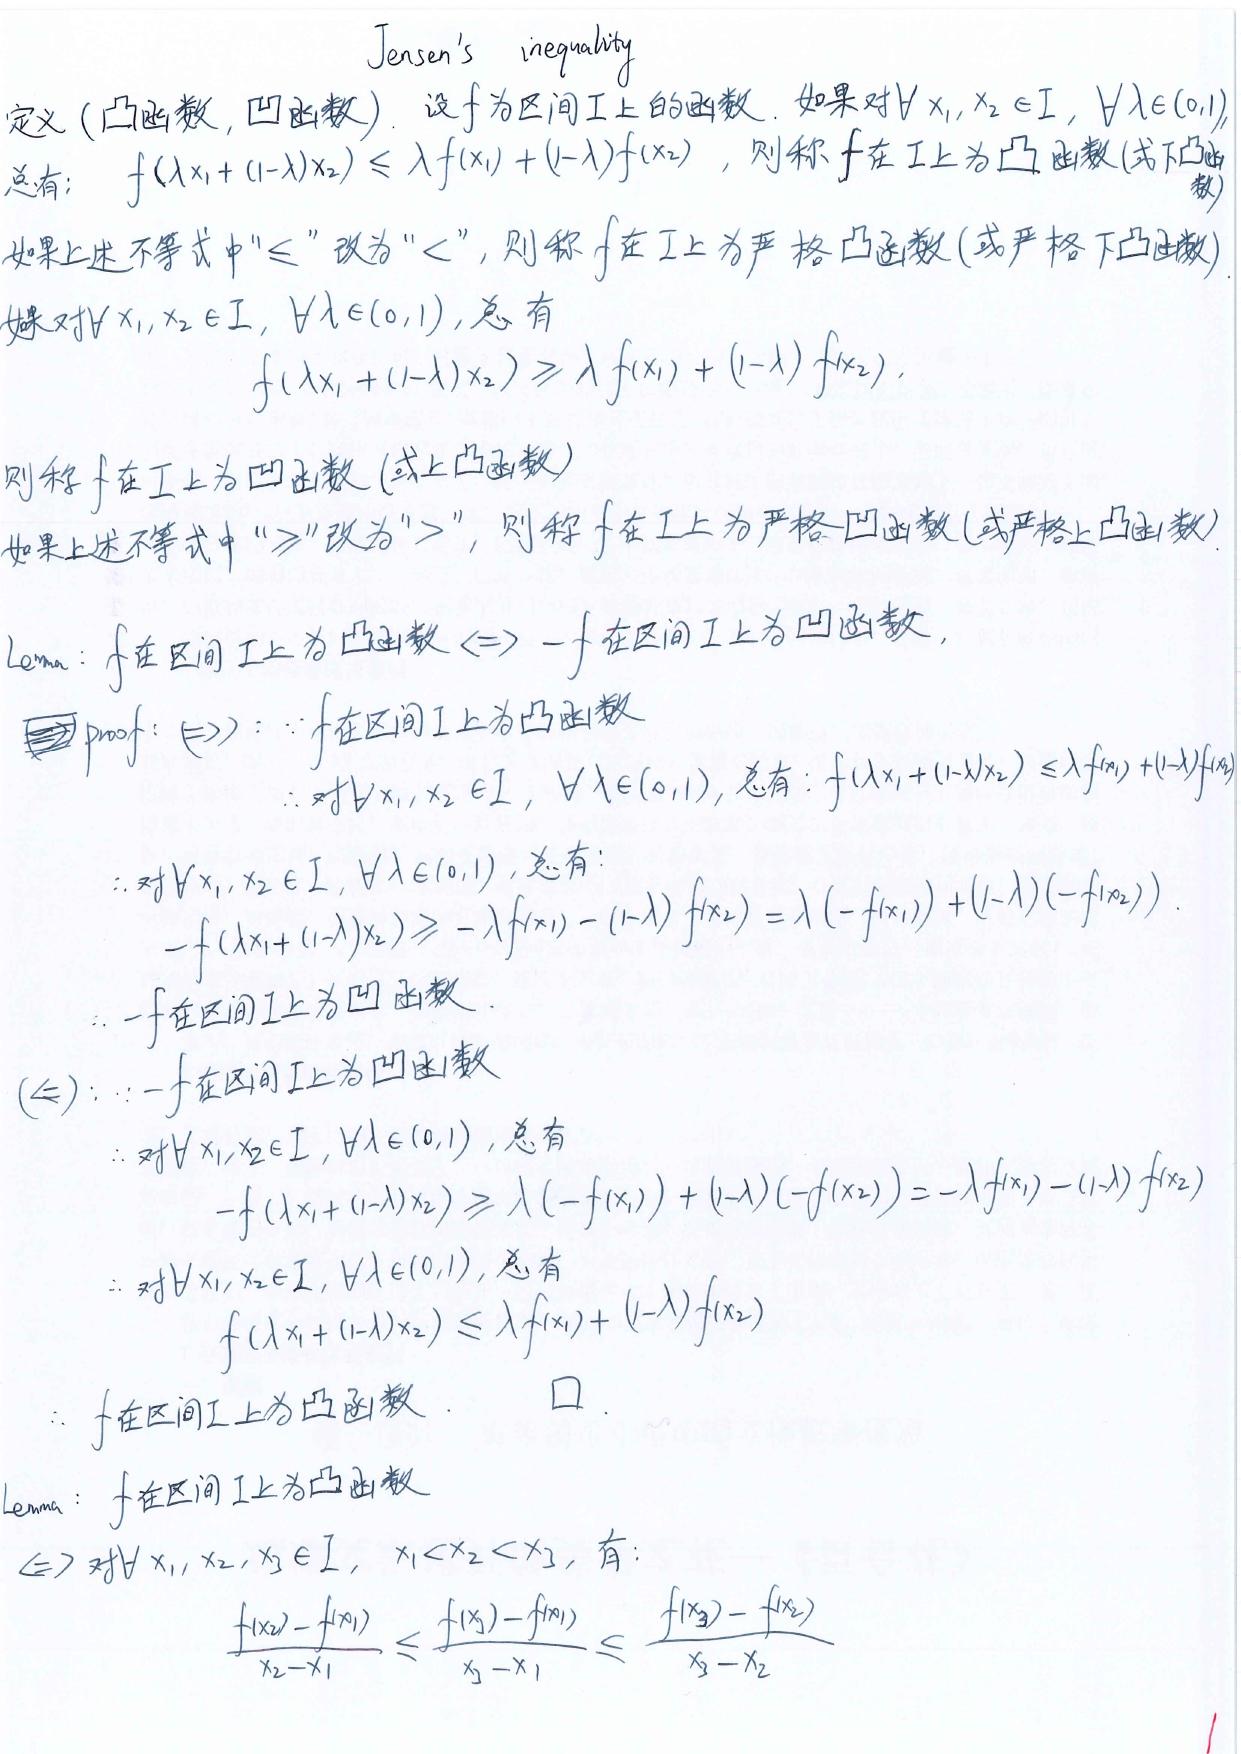 Jensen's inequality
定义 (凸函数, 凹函数). 设f为区间I上的函数. 如果对∀ x₁, x₂ ∈ I, ∀ λ∈(0,1),
总有: f(λx₁ + (1-λ)x₂) ≤ λf(x₁) + (1-λ)f(x₂), 则称f在I上为凸函数(或下凸函数)
如果上述不等式中"≤"改为"<", 则称f在I上为严格凸函数(或严格下凸函数).
如果对∀ x₁, x₂ ∈ I, ∀λ∈(0,1), 总有
f(λx₁ + (1-λ)x₂) ≥ λf(x₁) + (1-λ)f(x₂).
则称f在I上为凹函数(或上凸函数)
如果上述不等式中"≥"改为">", 则称f在I上为严格凹函数(或严格上凸函数).
Lemma: f在区间I上为凸函数 <=> -f在区间I上为凹函数.
proof: (=>): ∵ f在区间I上为凸函数
∴ 对∀x₁, x₂ ∈ I, ∀λ∈(0,1), 总有: f(λx₁ + (1-λ)x₂) ≤ λf(x₁) + (1-λ)f(x₂)
∴ 对∀x₁, x₂ ∈ I, ∀λ∈(0,1), 总有:
-f(λx₁ + (1-λ)x₂) ≥ -λf(x₁) - (1-λ)f(x₂) = λ(-f(x₁)) + (1-λ)(-f(x₂)).
∴ -f在区间I上为凹函数.
(<=): ∵ -f在区间I上为凹函数
∴ 对∀x₁, x₂ ∈ I, ∀λ∈(0,1), 总有
-f(λx₁ + (1-λ)x₂) ≥ λ(-f(x₁)) + (1-λ)(-f(x₂)) = -λf(x₁) - (1-λ)f(x₂)
∴ 对∀x₁, x₂ ∈ I, ∀λ∈(0,1), 总有
f(λx₁ + (1-λ)x₂) ≤ λf(x₁) + (1-λ)f(x₂)
∴ f在区间I上为凸函数. □.
Lemma: f在区间I上为凸函数
<=> 对∀ x₁, x₂, x₃ ∈ I, x₁<x₂<x₃, 有:
(f(x₂)-f(x₁))/(x₂-x₁) ≤ (f(x₃)-f(x₁))/(x₃-x₁) ≤ (f(x₃)-f(x₂))/(x₃-x₂)